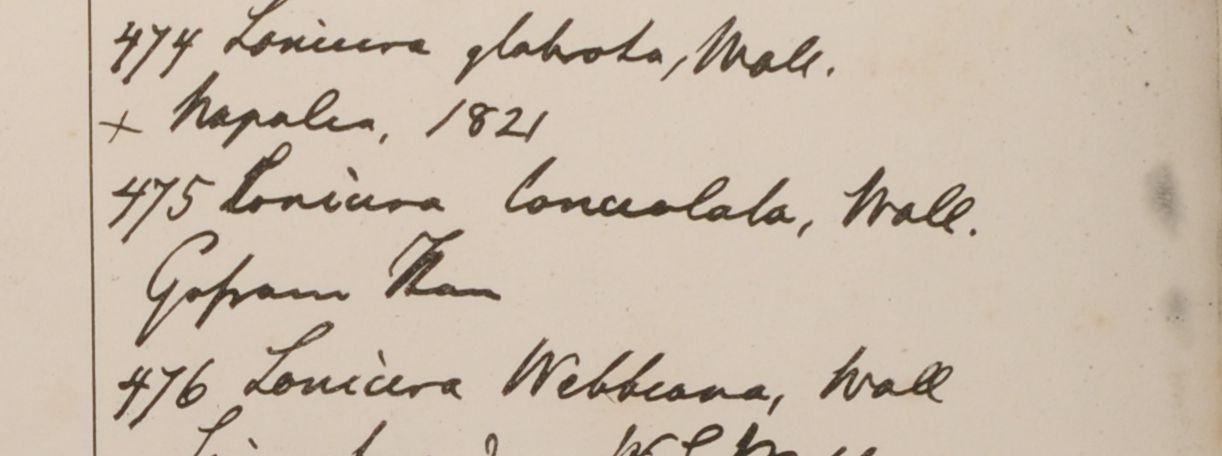 474 Lonicera glabrata, Wall.
+ Napalia, 1821
475 Lonicera lanceolata, Wall.
476 Lonicera Webbeana, Wall